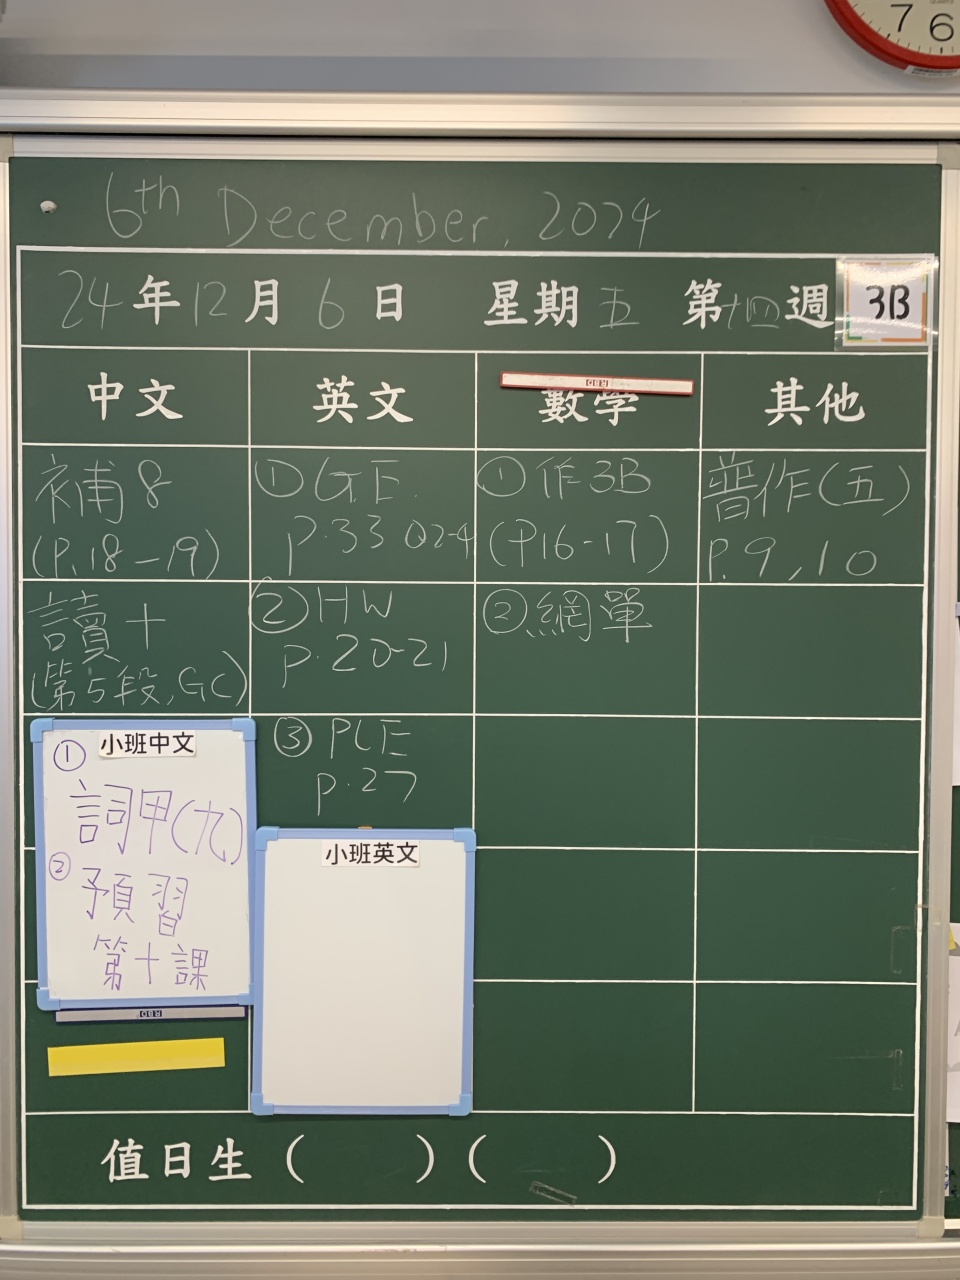 7 6
6th December, 2024
24年12月6日 星期五 第十四週 3B
中文 英文 數學 其他
補8
(P.18-19)
①GE
p.33 Q2-4
①作3B
(P16-17)
普作(五)
P.9,10
讀十
(第5段,GC)
②HW
p.20-21
②網單
③PLE
p.27
小班中文
①
詞甲(九)
②
預習
第十課
小班英文
值日生( )( )